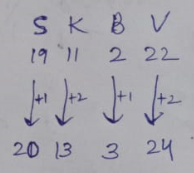 S K B V
19 11 2 22
+1 +2 +1 +2
20 13 3 24